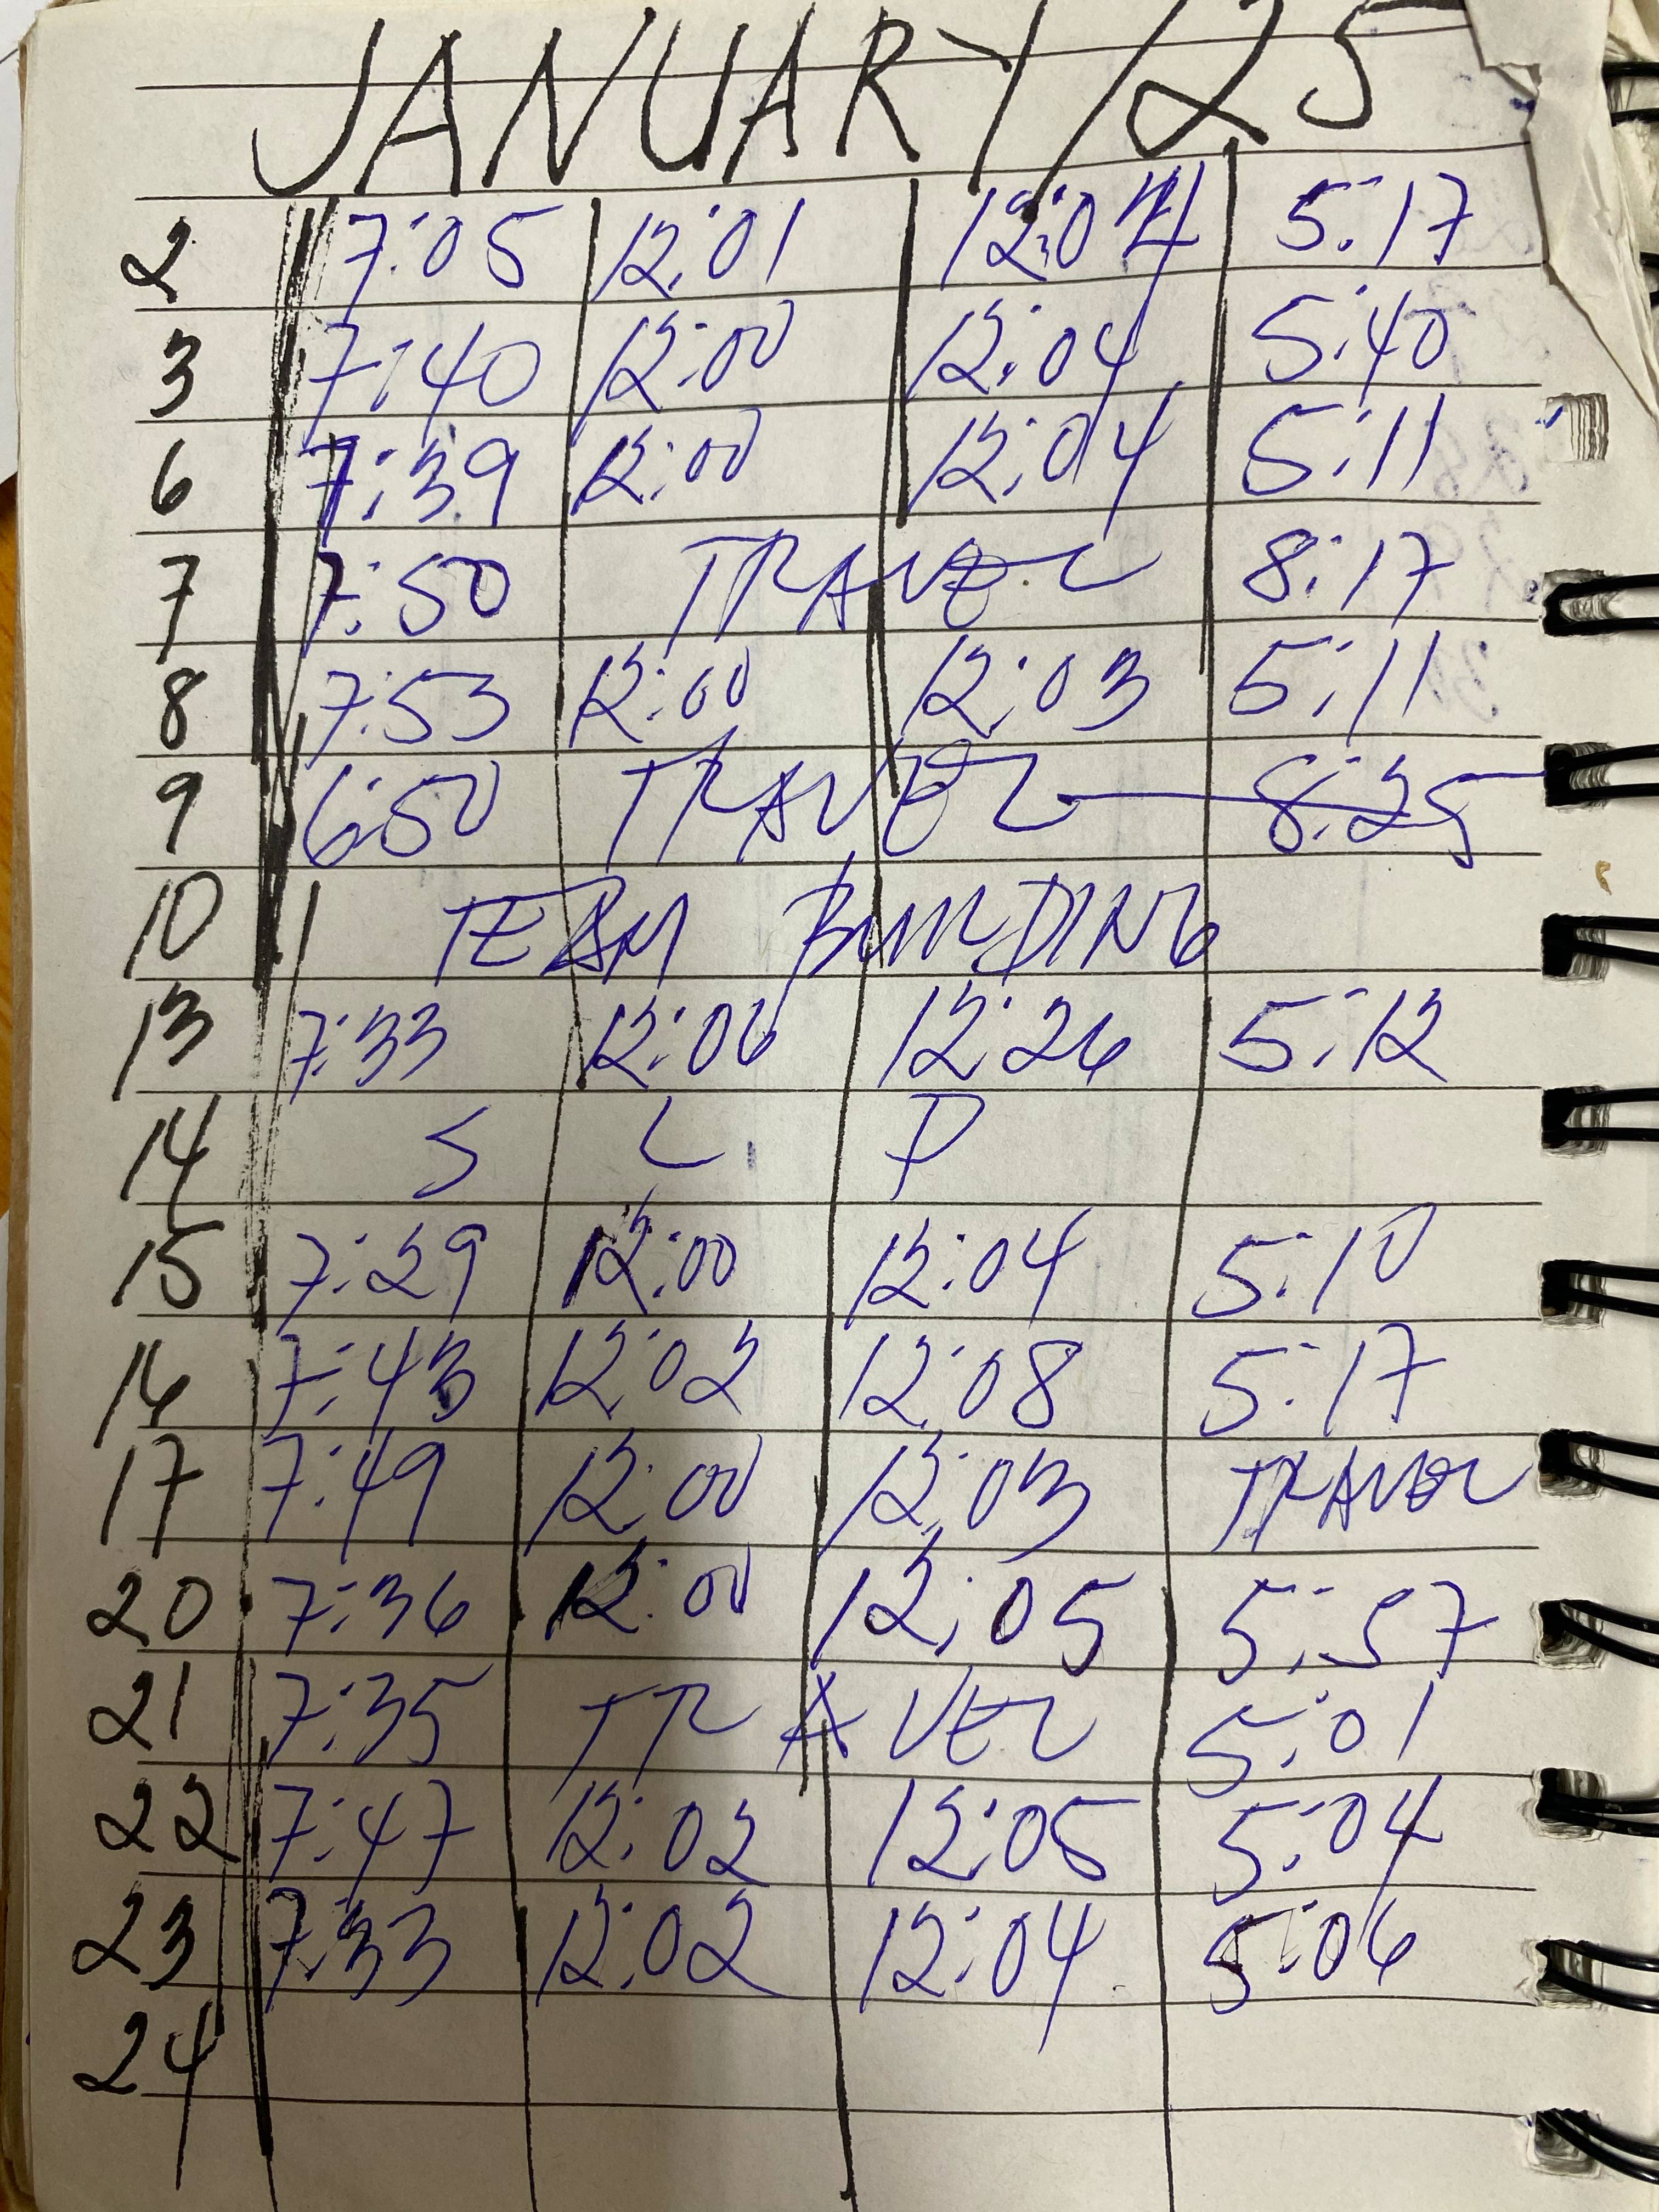 JANUARY/25
2 7:05 12:01 12:04 5:17
3 7:40 12:00 12:04 5:40
6 7:39 12:00 12:04 5:11
7 7:50 TRAVEL 8:17
8 7:53 12:00 12:03 5:11
9 6:50 TRAVEL 8:25
10 TEAM BUILDING
13 7:33 12:06 12:26 5:12
14 S L P
15 7:29 12:00 12:04 5:10
16 7:43 12:02 12:08 5:17
17 7:49 12:00 12:03 TRAVEL
20 7:36 12:00 12:05 5:57
21 7:35 TRAVEL 5:01
22 7:47 12:02 12:05 5:04
23 7:33 12:02 12:04 5:06
24